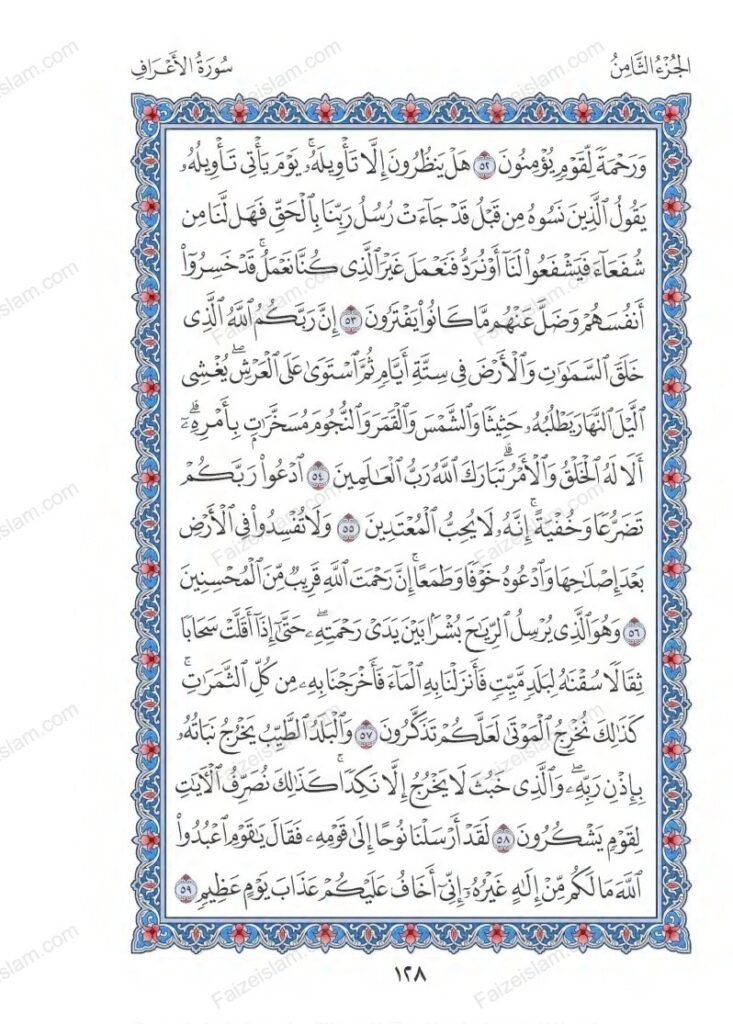 الجُزْءُ الثَّامِنُ
سُورَةُ الأَعْرَافِ
وَرَحْمَةً لِّقَوْمٍ يُؤْمِنُونَ ٥٢ هَلْ يَنظُرُونَ إِلَّا تَأْوِيلَهُۥۚ يَوْمَ يَأْتِى تَأْوِيلُهُۥ
يَقُولُ ٱلَّذِينَ نَسُوهُ مِن قَبْلُ قَدْ جَآءَتْ رُسُلُ رَبِّنَا بِٱلْحَقِّ فَهَل لَّنَا مِن
شُفَعَآءَ فَيَشْفَعُوا۟ لَنَآ أَوْ نُرَدُّ فَنَعْمَلَ غَيْرَ ٱلَّذِى كُنَّا نَعْمَلُۚ قَدْ خَسِرُوٓا۟
أَنفُسَهُمْ وَضَلَّ عَنْهُم مَّا كَانُوا۟ يَفْتَرُونَ ٥٣ إِنَّ رَبَّكُمُ ٱللَّهُ ٱلَّذِى
خَلَقَ ٱلسَّمَـٰوَٰتِ وَٱلْأَرْضَ فِى سِتَّةِ أَيَّامٍ ثُمَّ ٱسْتَوَىٰ عَلَى ٱلْعَرْشِۖ يُغْشِى
ٱلَّيْلَ ٱلنَّهَارَ يَطْلُبُهُۥ حَثِيثًا وَٱلشَّمْسَ وَٱلْقَمَرَ وَٱلنُّجُومَ مُسَخَّرَٰتٍۭ بِأَمْرِهِۦٓۗ
أَلَا لَهُ ٱلْخَلْقُ وَٱلْأَمْرُۗ تَبَارَكَ ٱللَّهُ رَبُّ ٱلْعَـٰلَمِينَ ٥٤ ٱدْعُوا۟ رَبَّكُمْ
تَضَرُّعًا وَخُفْيَةًۚ إِنَّهُۥ لَا يُحِبُّ ٱلْمُعْتَدِينَ ٥٥ وَلَا تُفْسِدُوا۟ فِى ٱلْأَرْضِ
بَعْدَ إِصْلَـٰحِهَا وَٱدْعُوهُ خَوْفًا وَطَمَعًاۚ إِنَّ رَحْمَتَ ٱللَّهِ قَرِيبٌ مِّنَ ٱلْمُحْسِنِينَ
٥٦ وَهُوَ ٱلَّذِى يُرْسِلُ ٱلرِّيَـٰحَ بُشْرًۢا بَيْنَ يَدَىْ رَحْمَتِهِۦۖ حَتَّىٰٓ إِذَآ أَقَلَّتْ سَحَابًا
ثِقَالًا سُقْنَـٰهُ لِبَلَدٍ مَّيِّتٍ فَأَنزَلْنَا بِهِ ٱلْمَآءَ فَأَخْرَجْنَا بِهِۦ مِن كُلِّ ٱلثَّمَرَٰتِۚ
كَذَٰلِكَ نُخْرِجُ ٱلْمَوْتَىٰ لَعَلَّكُمْ تَذَكَّرُونَ ٥٧ وَٱلْبَلَدُ ٱلطَّيِّبُ يَخْرُجُ نَبَاتُهُۥ
بِإِذْنِ رَبِّهِۦۖ وَٱلَّذِى خَبُثَ لَا يَخْرُجُ إِلَّا نَكِدًاۚ كَذَٰلِكَ نُصَرِّفُ ٱلْـَٔايَـٰتِ
لِقَوْمٍ يَشْكُرُونَ ٥٨ لَقَدْ أَرْسَلْنَا نُوحًا إِلَىٰ قَوْمِهِۦ فَقَالَ يَـٰقَوْمِ ٱعْبُدُوا۟
ٱللَّهَ مَا لَكُم مِّنْ إِلَـٰهٍ غَيْرُهُۥٓ إِنِّىٓ أَخَافُ عَلَيْكُمْ عَذَابَ يَوْمٍ عَظِيمٍ ٥٩
١٢٨
Faizeislam.com